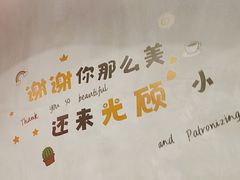 谢谢你那么美
Thank you so beautiful
还来光顾小
and Patronizing